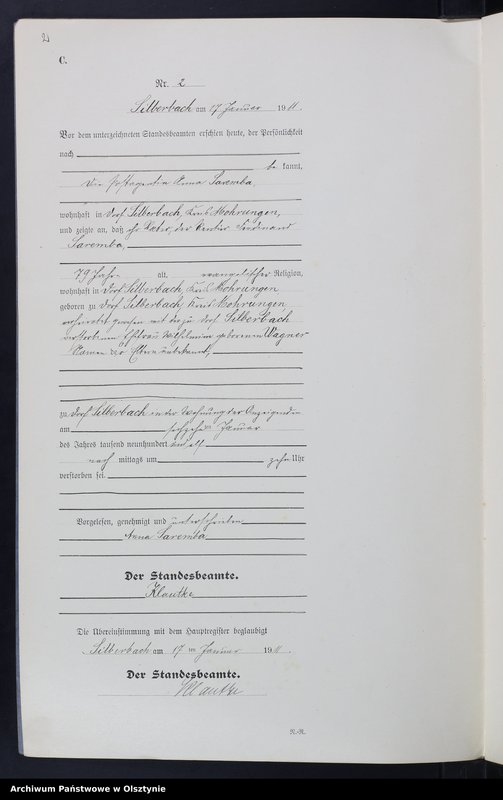 2
C.
Nr. 2
Silberbach am 17 Januar 1911.
Vor dem unterzeichneten Standesbeamten erschien heute, der Persönlichkeit
nach
be kannt,
die Postagentin Anna Saremba,
wohnhaft in Dorf Silberbach, Kreis Mohrungen,
und zeigte an, daß ihr Vater, der Rentier Ferdinand
Saremba,
79 Jahr alt, evangelischer Religion,
wohnhaft in Dorf Silberbach, Kreis Mohrungen
geboren zu Dorf Silberbach, Kreis Mohrungen
verheiratet gewesen mit der zu Dorf Silberbach
verstorbenen Ehefrau Wilhelmine geborenen Wagner
Namen der Eltern unbekannt,
zu Dorf Silberbach in der Wohnung der Anzeigenden
am sechzehnten Januar
des Jahres tausend neunhundert und elf
nach mittags um zehn Uhr
verstorben sei.
Vorgelesen, genehmigt und unterschrieben
Anna Saremba
Der Standesbeamte.
Klautke
Die Übereinstimmung mit dem Hauptregister beglaubigt
Silberbach am 17 ten Januar 1911.
Der Standesbeamte.
Klautke
N.-R.
Archiwum Państwowe w Olsztynie